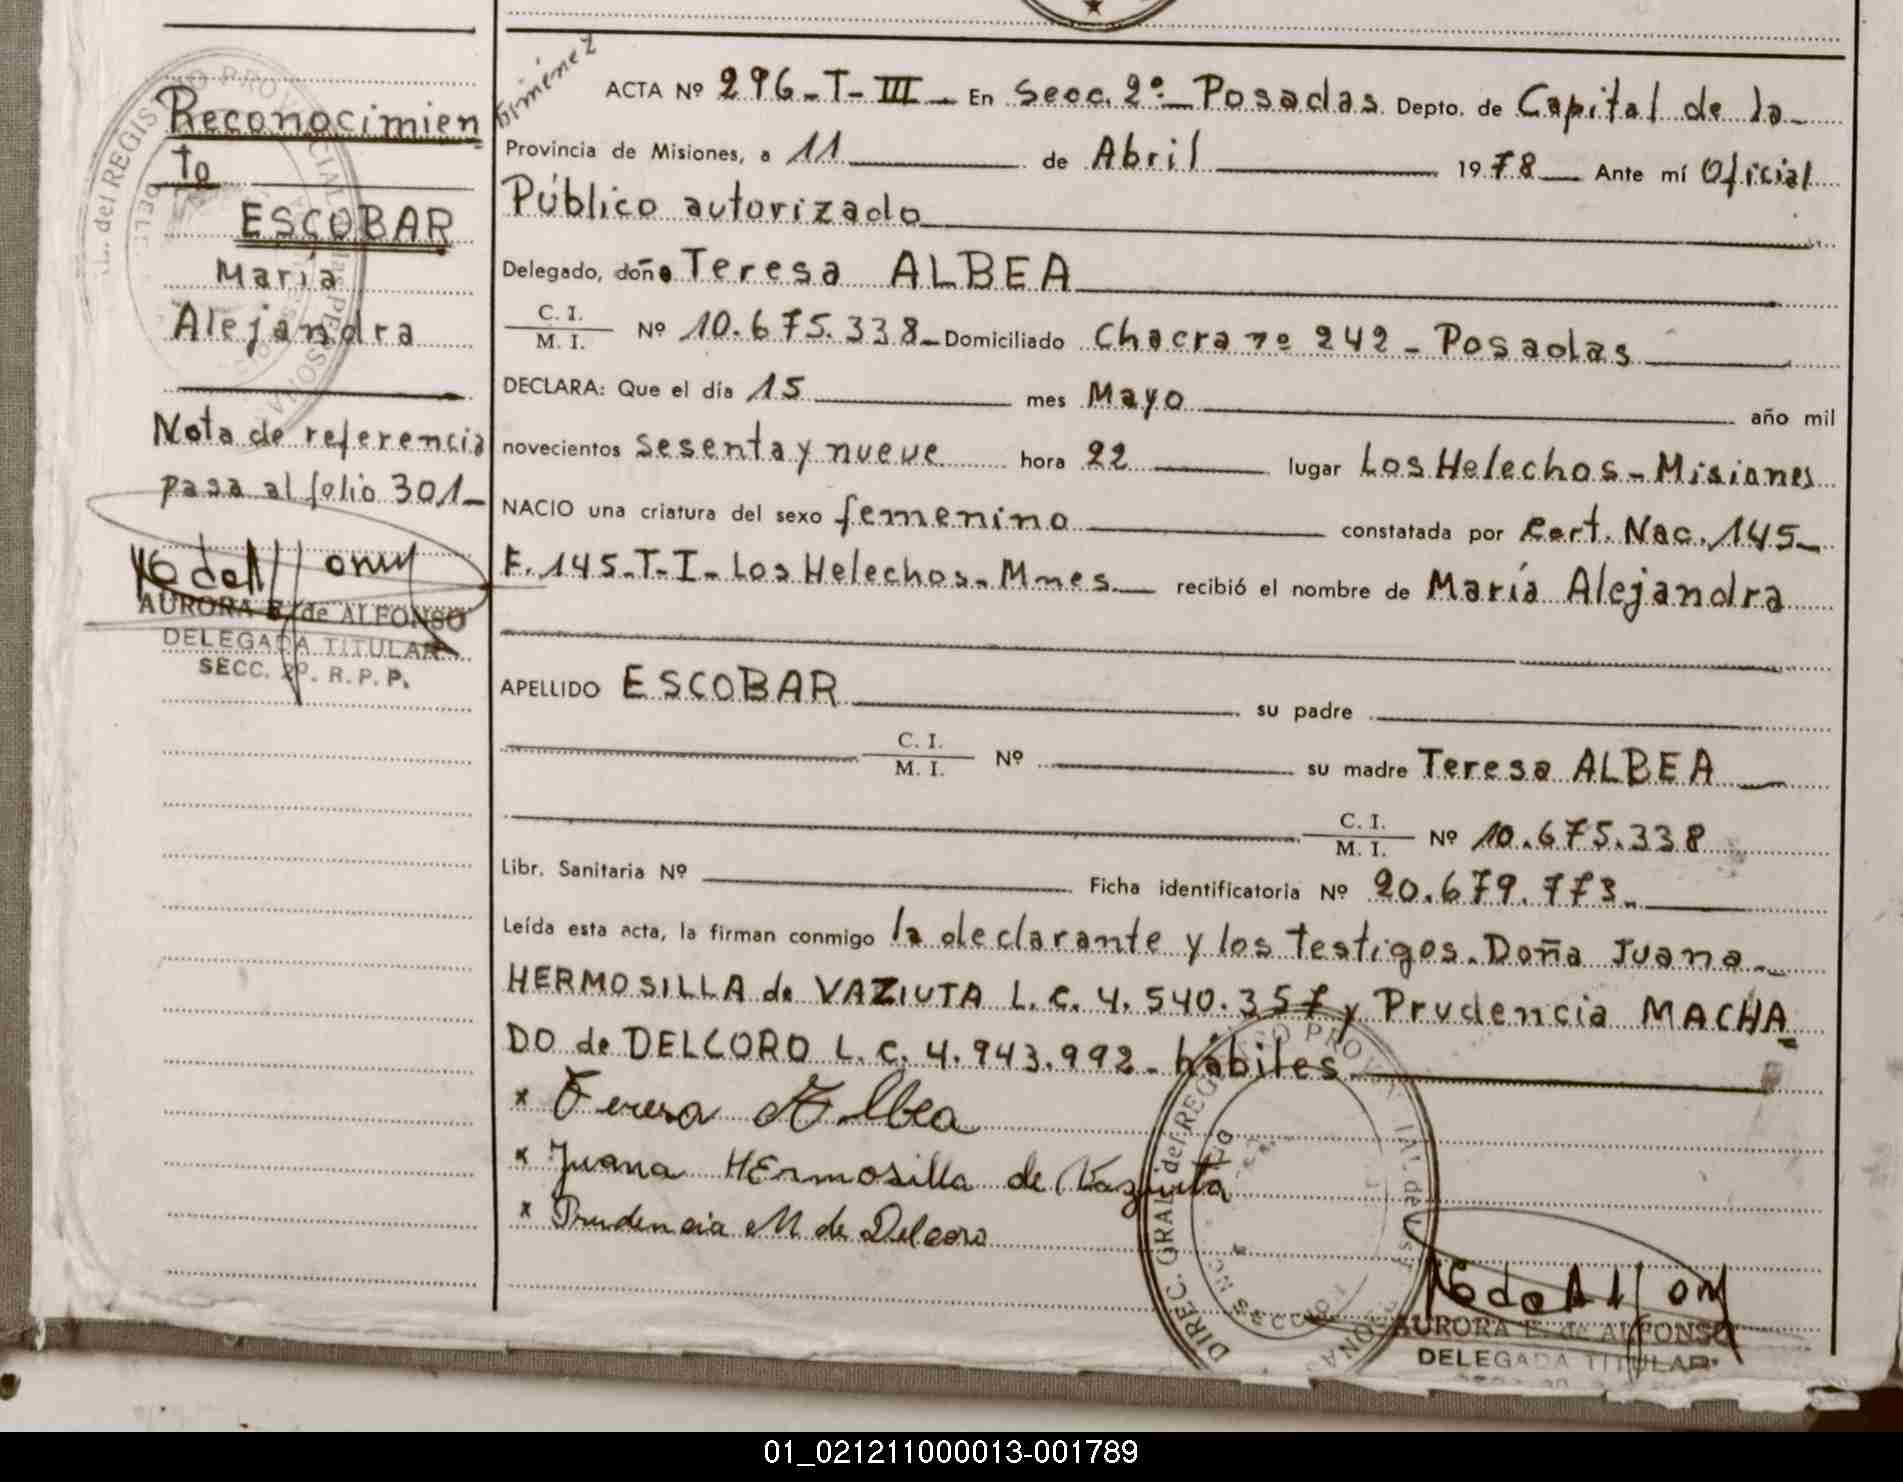 Reconocimien
to
ESCOBAR
María
Alejandra
Nota de referencia
pasa al folio 301_
AURORA E. de ALFONSO
DELEGADA TITULAR
SECC. 2º. R. P. P.
Giménez
ACTA Nº 296_T_III_ En Secc. 2º_ Posadas Depto. de Capital de la_
Provincia de Misiones, a 11 de Abril 1978 Ante mí Oficial
Público autorizado
Delegado, doña Teresa ALBEA
C. I.
M. I. Nº 10.675.338_ Domiciliado Chacra nº 242_ Posadas
DECLARA: Que el día 15 mes Mayo año mil
novecientos sesenta y nueve hora 22 lugar Los Helechos_ Misiones
NACIO una criatura del sexo femenino constatada por Cert. Nac. 145_
F. 145_T_I_ Los Helechos_ Mnes_ recibió el nombre de María Alejandra
APELLIDO ESCOBAR su padre
C. I.
M. I. Nº su madre Teresa ALBEA
C. I.
M. I. Nº 10.675.338
Libr. Sanitaria Nº Ficha identificatoria Nº 20.679.773_
Leída esta acta, la firman conmigo la declarante y los testigos. Doña Juana_
HERMOSILLA de VAZIUTA L. C. 4.540.357 y Prudencia MACHA
DO de DELCORO L. C. 4.943.992_ hábiles
x Teresa Albea
x Juana HErmosilla de Vaziuta
x Prudencia M de Delcoro
DIREC. GRAL. del REGISTRO PROVINCIAL de las PERSONAS
AURORA E. de ALFONSO
DELEGADA TITULAR
01_021211000013-001789